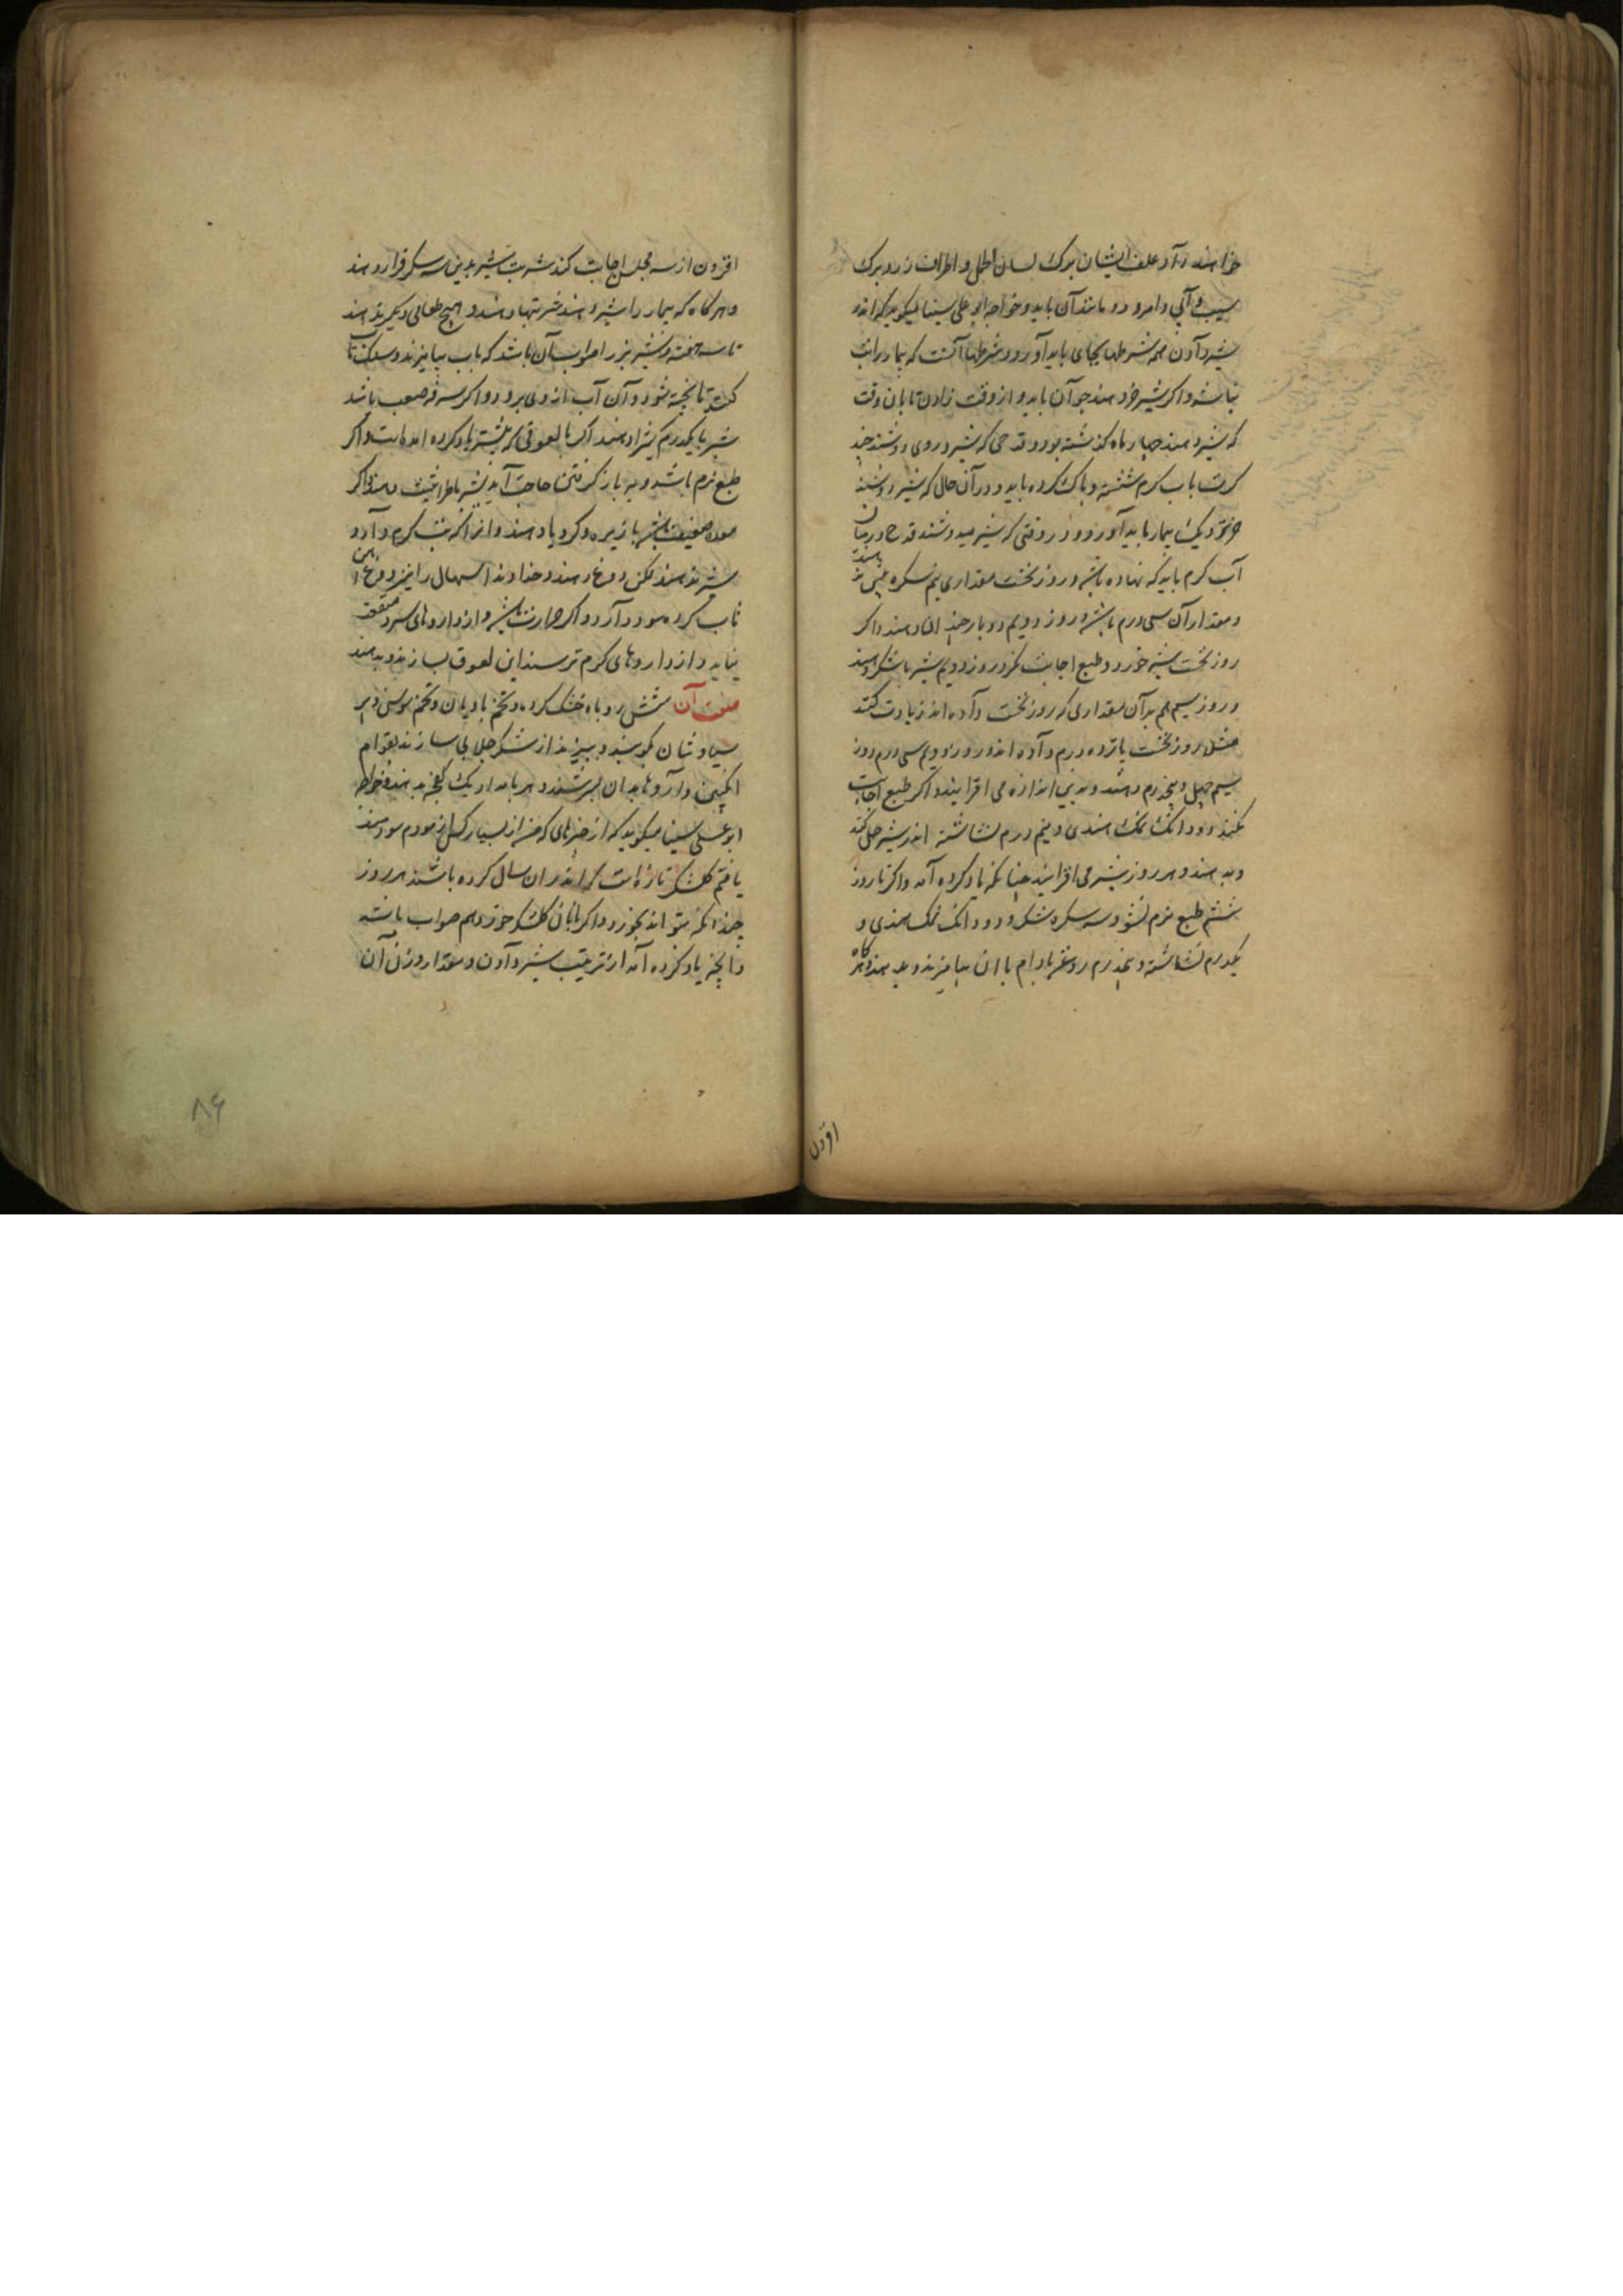 خواهند داد علف ایشان برک لسان الحمل و اطراف زرد برک
سیب و آبی و امرود و مانند آن باید و خواجه ابو علی سینا میکوید که اندر
شیر دادن همه شرطها بجای باید آورد و شرطها آنست که بیمار را تب
نباشد و اکر شیر خر دهند جوان باید و از وقت زادن تا بان وقت
که شیر دهند چهار ماه کذشته بود و قدحی که شیر در وی دوشند چند
کرت باب کرم شسته و پاک کرده باید و در آن حال که شیر دوشند
خر نزدیک بیمار باید آورد و در وقتی که شیر میدوشند قدح در میان
آب کرم باید که نهاده باشد و روز نخست مقداری نیم سکره بیش ندهند
و مقدار آن سی درم باشد و روز دویم دو بار چند ان دهند و اکر
روز نخست شیر خورد و طبع اجابت نکرد روز دویم شیر با شکر دهند
و روز سیم هم بر آن مقداری که روز نخست داده اند زیادت کنند
مثلا روز نخست پانزده درم داده اند و روز دویم سی درم روز
سیم چهل و پنج درم دهند و بدین اندازه می افزایند و اکر طبع اجابت
نکند دو دانک نمک هندی و نیم درم نشاشته اندر شیر حل کنند
و بدهند و هر روز شیر می افزایند چنانکه یاد کرده آمد و اکر تا روز
ششم طبع نرم نشود سه سکره شکر و دو دانک نمک هندی و
یکدرم نشاشته و پنجدرم روغن بادام با ان بیامیزند و بدهند و هرکاه
افزون
افزون از سه مجلس اجابت کند شربت شیر بدین سه سکره قرار دهند
و هر کاه که بیمار را شیر دهند شیر تنها دهند و هیچ طعامی دیکر ندهند
تا سه هفته و شیر بز را صواب آن باشد که باب بیامیزند و سنک تاب
کنند تا پخته شود و آن آب از وی برود و اکر سرفه صعب باشد
شیر با یکدرم کتیرا دهند اکر با لعوقی که پیشتر یاد کرده امد رواست و اکر
طبع نرم باشد و به باز کرفتن حاجت آید شیر با طراثیث دهند و اکر
معده ضعیف باشد با زیره و کرویا دهند و انرا که تب کرم دارد
شیر ندهند لکن دوغ دهند و خداوند اسهال را نیز دوغ آهن
تاب کرده سود دارد و اکر حرارت باشد و از داروهای سرد منفعت
نیاید و از داروهای کرم ترسند این لعوق بسازند و بدهند
صفت آن شش روباه خشک کرده و تخم بادیان و تخم سوسن و پر
سیاوشان کوبند و ببیزند از شکر جلابی سازند بقوام
انکبین و داروها بدان بسرشند و هر بامداد یک کفجه بدهند و خواجه
ابو علی سینا میکوید که از چیزهای که من از بسیار کس از مودم سودمند
یافتم کلشکر تازه است که اندران سال کرده باشند هر روز
چندانکه بتواند بخورد و اکر با نان کلشکر خورد هم صواب باشد
و آنچه یاد کرده آمد از ترتیب شیر دادن و مقدار وزن آن
۸۶